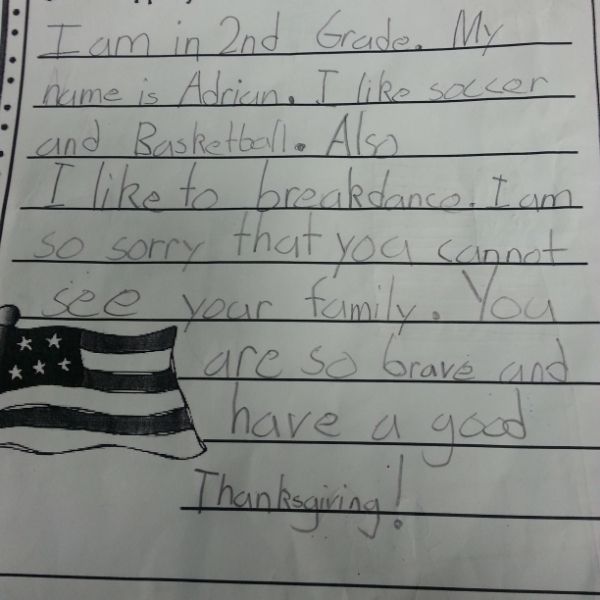 I am in 2nd Grade. My
name is Adrian. I like soccer
and Basketball. Also
I like to breakdance. I am
so sorry that you cannot
see your family. You
are so brave and
have a good
Thanksgiving!